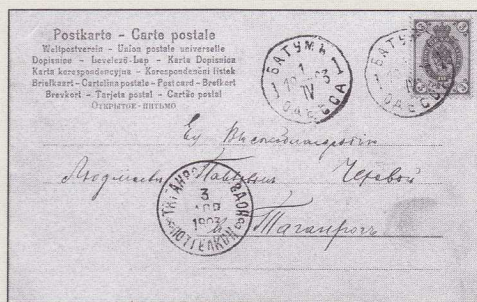 Postkarte – Carte postale
Weltpostverein – Union postale universelle
Dopisnice – Levelező-Lap – Karta Dopisnica
Karta korespondencyjna – Korespondenční lístek
Briefkaart – Cartolina postale – Post card – Brefkort
Brevkort – Tarjeta postal – Cartão postal
ОТКРЫТОЕ ПИСЬМО
БАТУМЪ
1
IV
ОДЕССА
БАТУМЪ
ОДЕССА
Ея Высокоблагородію
Людмилѣ Павловнѣ
Таганрогъ
3
1903
ПОЧТ ТЕЛ КОН